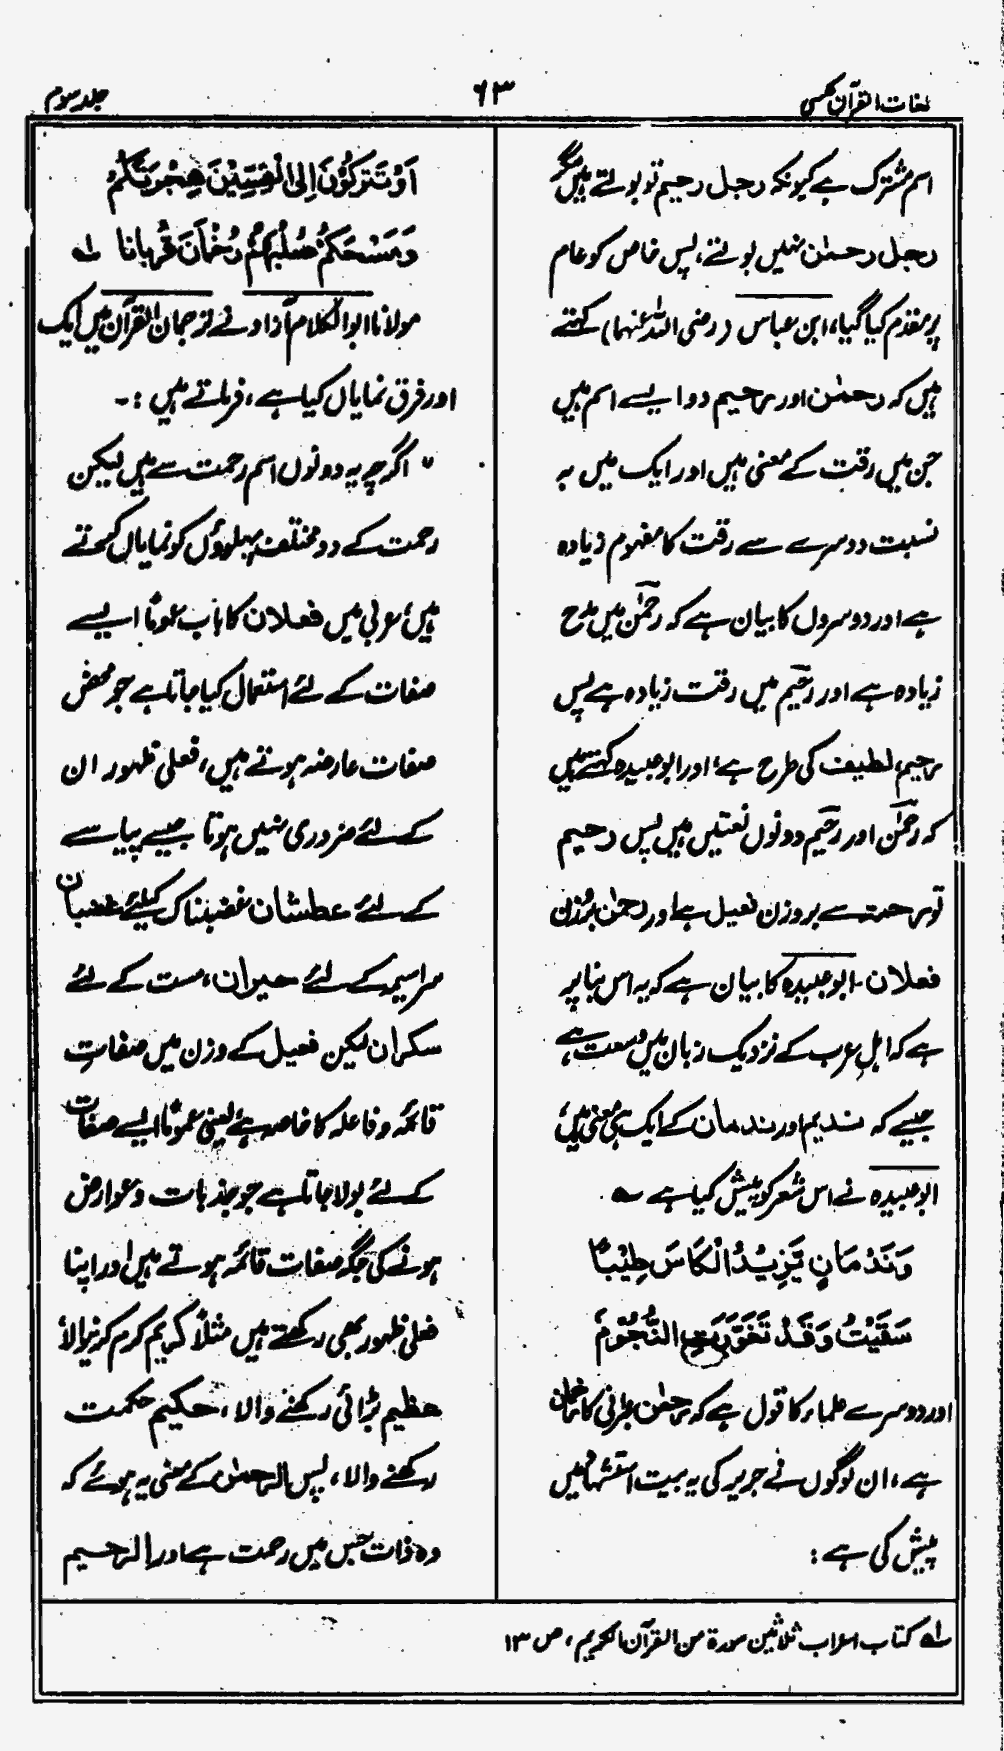 لغات القرآن عکسی
۶۳
جلد سوم
اسم مشترک ہے کیونکہ رجل رحیم تو بولتے ہیں مگر
رجل رحمٰن نہیں بولتے، پس خاص کو عام
پر مقدم کیا گیا، ابن عباس (رضی اللہ عنہما) کہتے
ہیں کہ رحمٰن اور رحیم دو ایسے اسم ہیں
جن میں رقت کے معنی ہیں اور ایک میں بہ
نسبت دوسرے سے رقت کا مفہوم زیادہ
ہے اور دوسروں کا بیان ہے کہ رحمٰن میں مدح
زیادہ ہے اور رحیم میں رقت زیادہ ہے پس
رحیم، لطیف کی طرح ہے، اور ابو عبیدہ کہتے ہیں
کہ رحمٰن اور رحیم دونوں نعتیں ہیں پس رحیم
تو رحمت سے بروزن فعیل ہے اور رحمٰن بروزن
فعلان۔ ابو عبیدہ کا بیان ہے کہ یہ اس بنا پر
ہے کہ اہلِ عرب کے نزدیک زبان میں وسعت ہے،
جیسے کہ ندیم اور ندمان کے ایک ہی معنی ہیں،
ابو عبیدہ نے اس شعر کو پیش کیا ہے ؎
وَنَدْمَانٍ يَزِيْدُ الْكَاسَ طِيْبًا
سَقَيْتُ وَقَدْ تَغَوَّرَتِ النُّجُوْمُ
اور دوسرے علماء کا قول ہے کہ رحمٰن عبرانی کا رخمان
ہے، ان لوگوں نے جریر کی یہ بیت استشہاد میں
پیش کی ہے :
اَوْ تَتْرُكُوْنَ اِلَى الْقِسِّيْنَ هِجْرَتَكُمْ
وَمَسْحَكُمْ صُلْبَهُمْ رُخْمَانَ قُرْبَانَا لے
مولانا ابو الکلام آزاد نے ترجمان القرآن میں ایک
اور فرق نمایاں کیا ہے، فرماتے ہیں :۔
" اگرچہ یہ دونوں اسم رحمت سے ہیں لیکن
رحمت کے دو مختلف پہلوؤں کو نمایاں کرتے
ہیں، عربی میں فعلان کا باب عموماً ایسے
صفات کے لئے استعمال کیا جاتا ہے جو محض
صفات عارضہ ہوتے ہیں، فعلی ظہور ان
کے لئے ضروری نہیں ہوتا جیسے پیاسے
کے لئے عطشان غضبناک کیلئے غضبان
سراسیمہ کے لئے حیران، مست کے لئے
سکران لیکن فعیل کے وزن میں صفاتِ
قائمہ و فاعلہ کا خاصہ ہے یعنی عموماً ایسے صفات
کے لئے بولا جاتا ہے جو جذبات و عوارض
ہونے کی جگہ صفات قائمہ ہوتے ہیں اور اپنا
فعلی ظہور بھی رکھتے ہیں مثلاً کریم کرم کرنیوالا
عظیم بڑائی رکھنے والا، حکیم حکمت
رکھنے والا، پس الرحمٰن کے معنی یہ ہوئے کہ
وہ ذات جس میں رحمت ہے اور الرحیم
لے کتاب اعراب ثلاثین سورة من القرآن الکریم، ص ۱۳